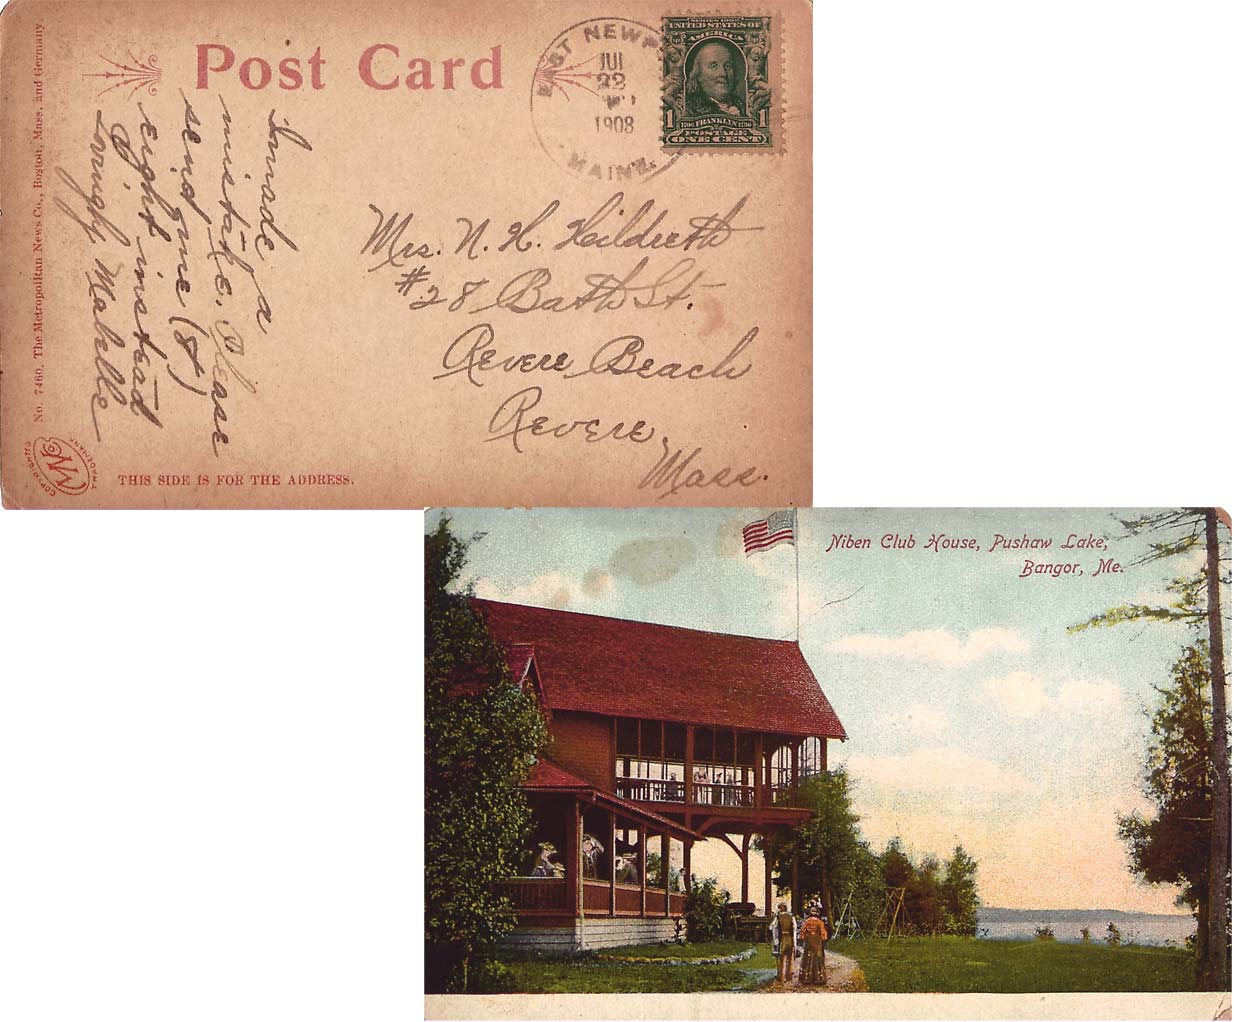 Post Card
EAST NEWP
JUL
22
1908
MAINE.
SERIES 1902
UNITED STATES OF
AMERICA
1706 FRANKLIN 1790
1 POSTAGE 1
ONE CENT
I made a
mistake. Please
send me (8)
eight instead
Lovingly Mabelle
Mrs. N. H. Heildreth
#28 Bath St.
Revere Beach
Revere,
Mass.
No. 7460. The Metropolitan News Co., Boston, Mass. and Germany
COPYRIGHTED
TRADEMARK
THIS SIDE IS FOR THE ADDRESS.
Niben Club House, Pushaw Lake,
Bangor, Me.